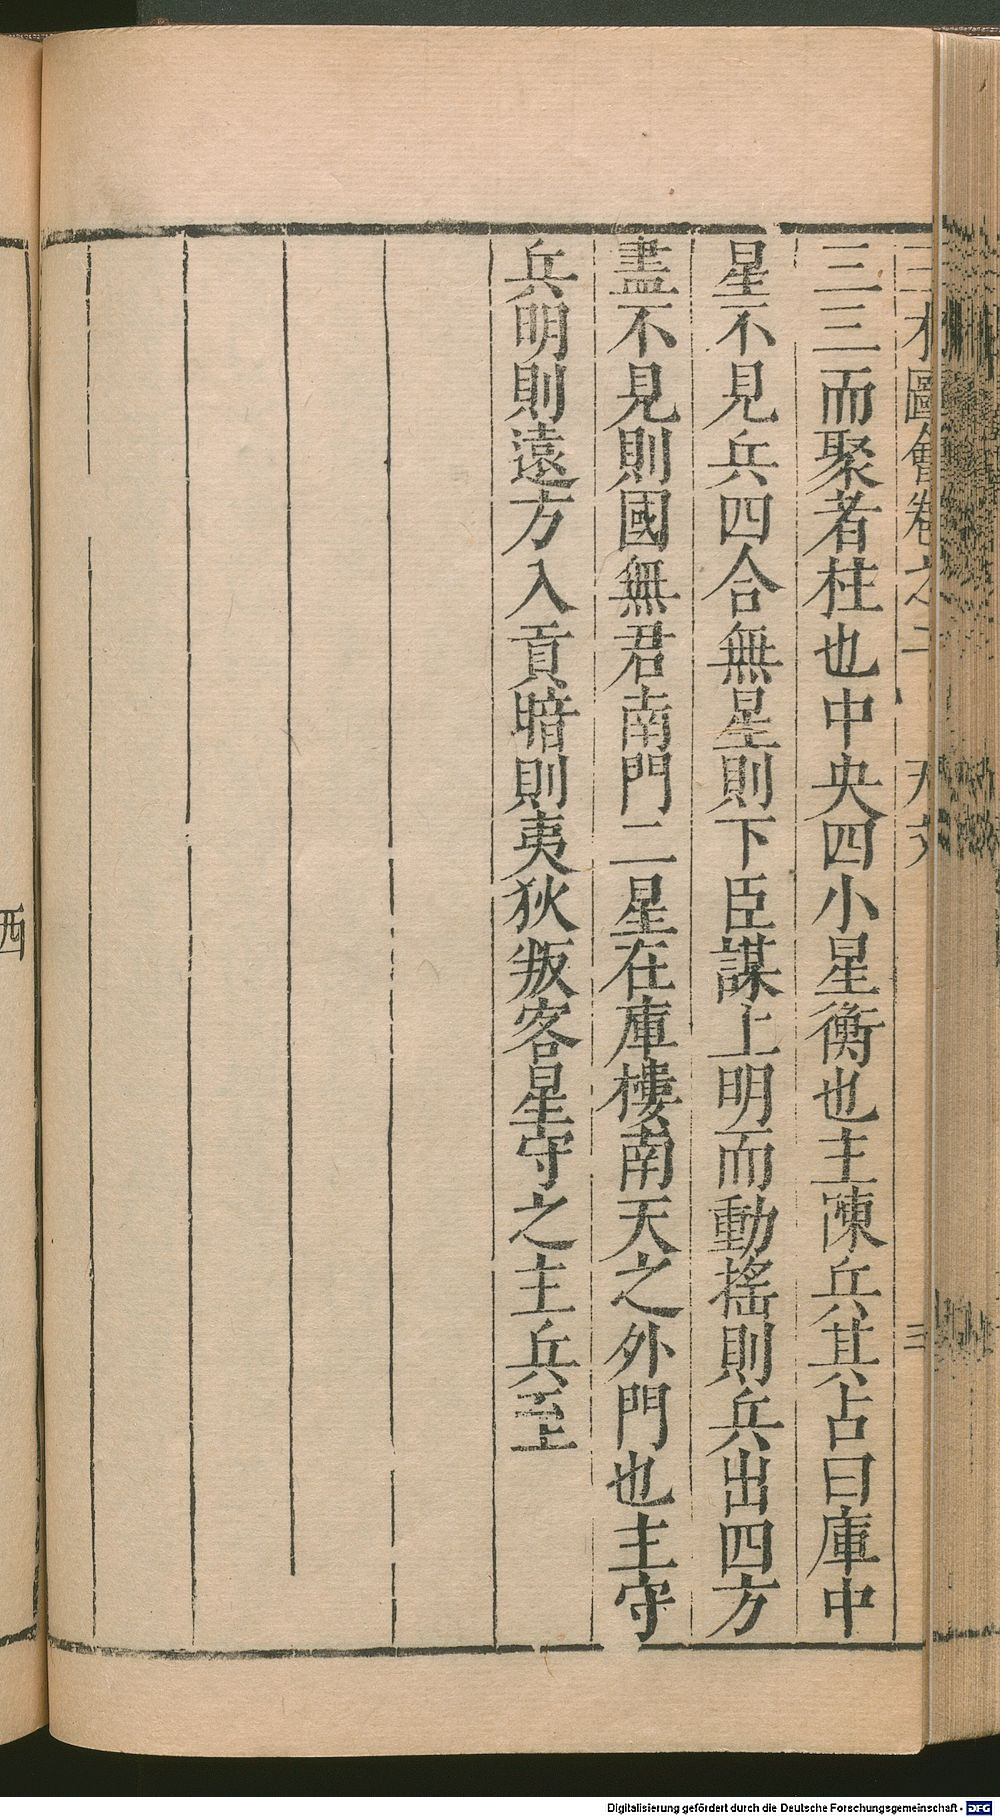 三才圖會卷之二 天文 三
三三而聚者柱也中央四小星衡也主陳兵其占曰庫中
星不見兵四合無星則下臣謀上明而動搖則兵出四方
盡不見則國無君南門二星在庫樓南天之外門也主守
兵明則遠方入貢暗則夷狄叛客星守之主兵至
西
Digitalisierung gefördert durch die Deutsche Forschungsgemeinschaft - DFG